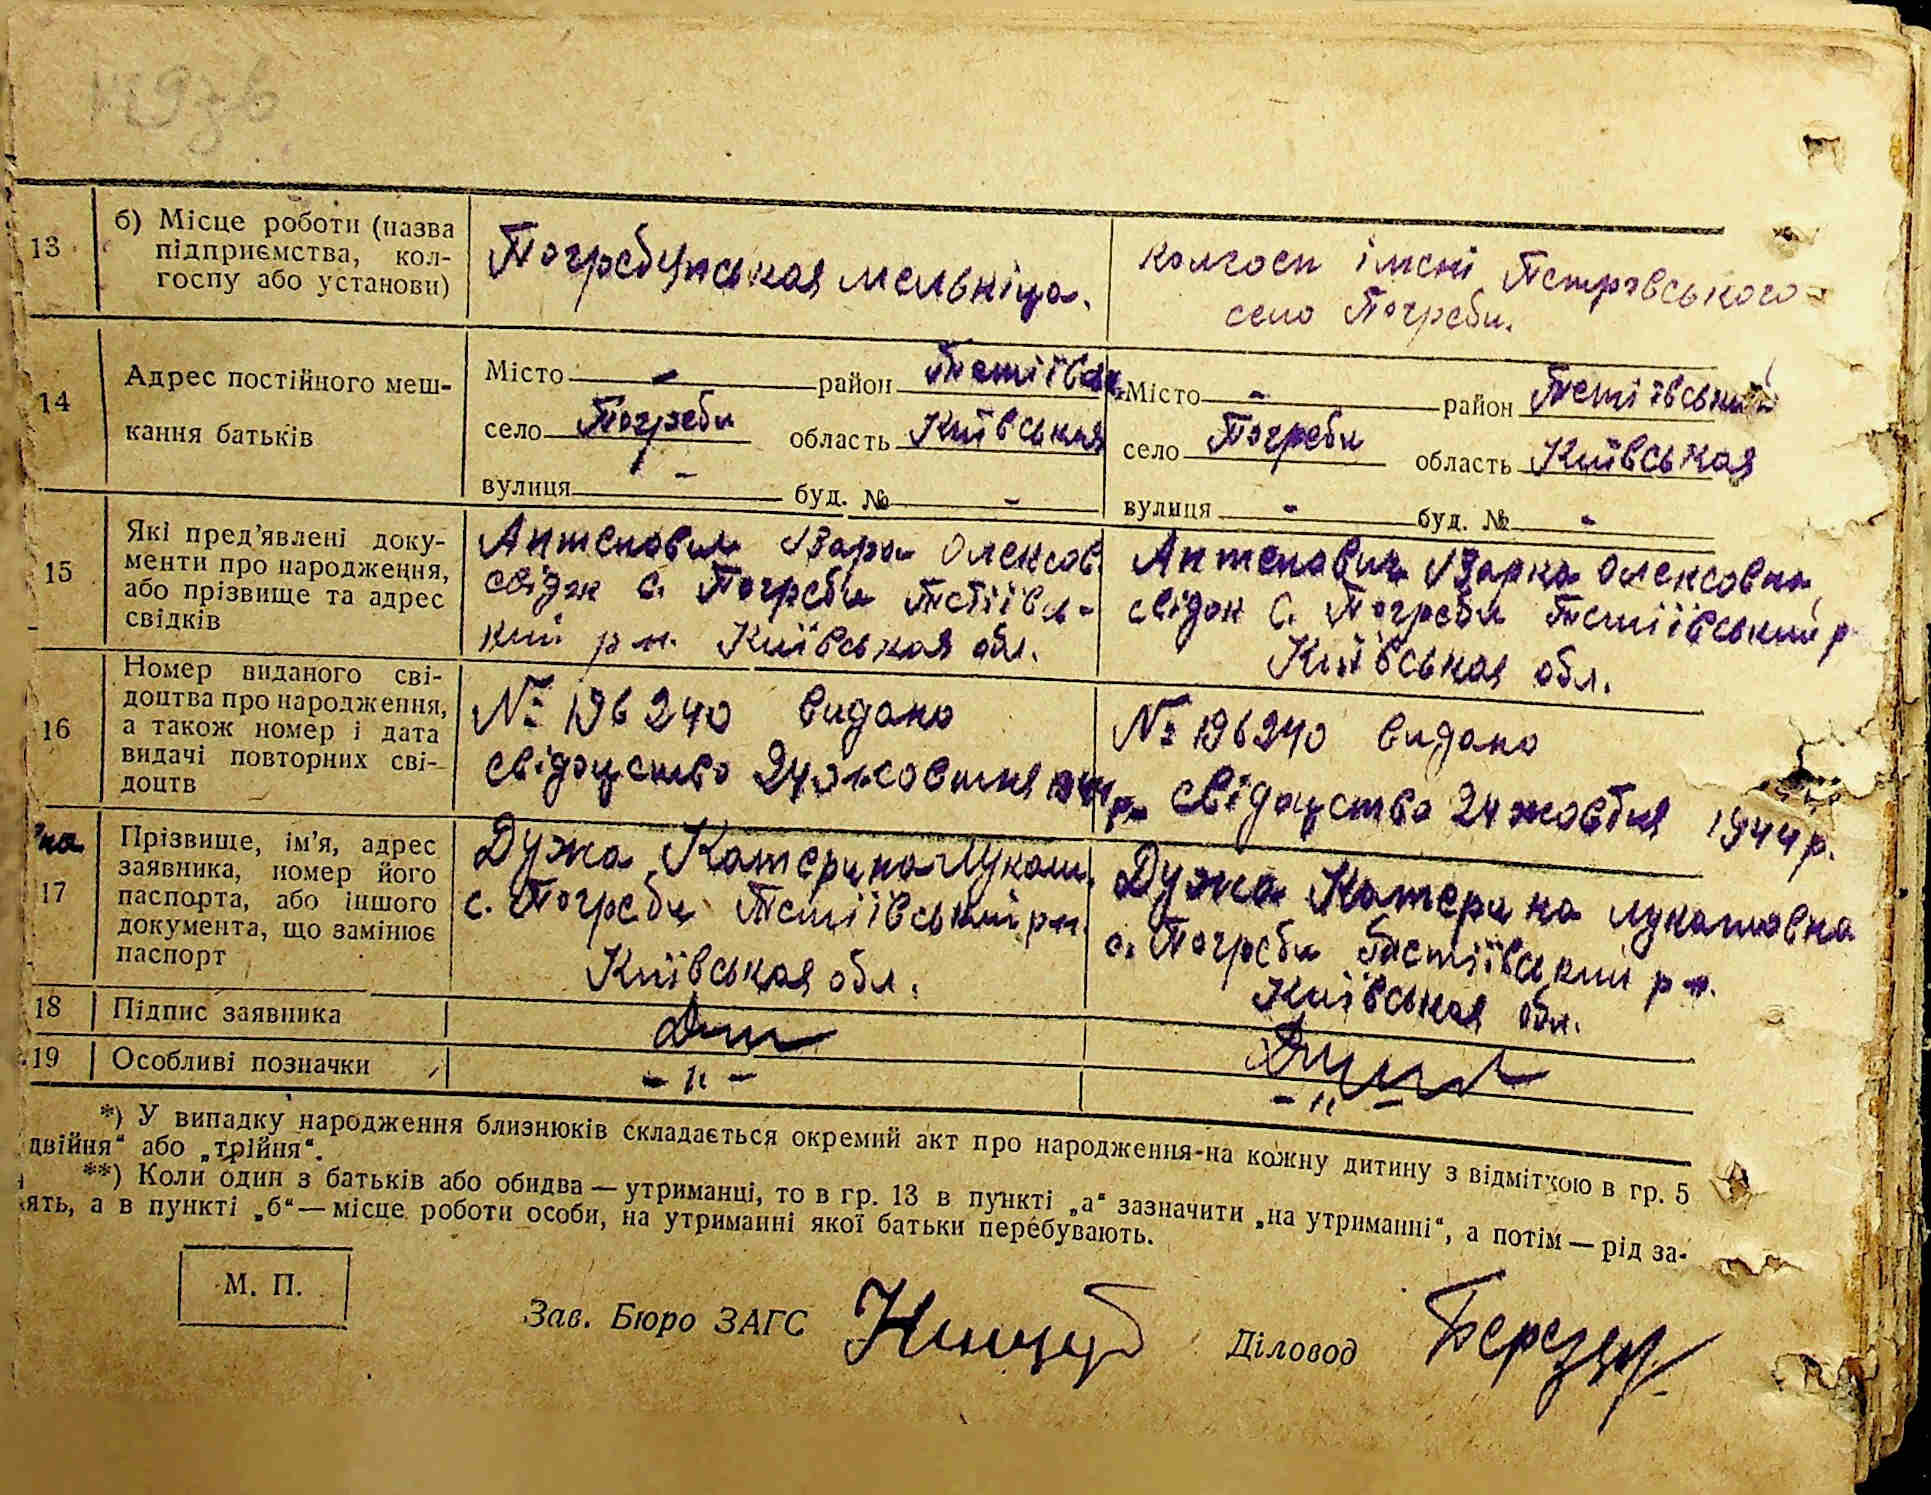 13
б) Місце роботи (назва
підприємства, кол-
госпу або установи)
Погребунськая мельніца.
колгосп імені Петровського
село Погреби.
14
Адрес постійного меш-
кання батьків
Місто - район Тетіївськ.
село Погреби область Київськая
вулиця - буд. № -
Місто - район Тетіївський
село Погреби область Київськая
вулиця - буд. № -
15
Які пред’явлені доку-
менти про народження,
або прізвище та адрес
свідків
Олексов
свідок с. Погреби Тетіївсь-
кий р-н. Київськая обл.
Варка Олексовна
свідок с. Погреби Тетіївський р
Київськая обл.
16
Номер виданого сві-
доцтва про народження,
а також номер і дата
видачі повторних сві-
доцтв
№ 196240 видано
свідоцство 24 жовтня 1944 р.
№ 196240 видано
свідоцство 24 жовтня 1944 р.
на
17
Прізвище, ім’я, адрес
заявника, номер його
паспорта, або іншого
документа, що замінює
паспорт
Дужа Катерина Лукаш.
с. Погреби Тетіївський р-н.
Київськая обл.
Дужа Катерина Лукашовна
с. Погреби Тетіївський р-н.
Київськая обл.
18
Підпис заявника
19
Особливі позначки
- " -
- " -
*) У випадку народження близнюків складається окремий акт про народження-на кожну дитину з відміткою в гр. 5
двійня“ або „трійня“.
**) Коли один з батьків або обидва — утриманці, то в гр. 13 в пункті „а“ зазначити „на утриманні“, а потім — рід за-
ять, а в пункті „б“ — місце роботи особи, на утриманні якої батьки перебувають.
М. П.
Зав. Бюро ЗАГС
Діловод